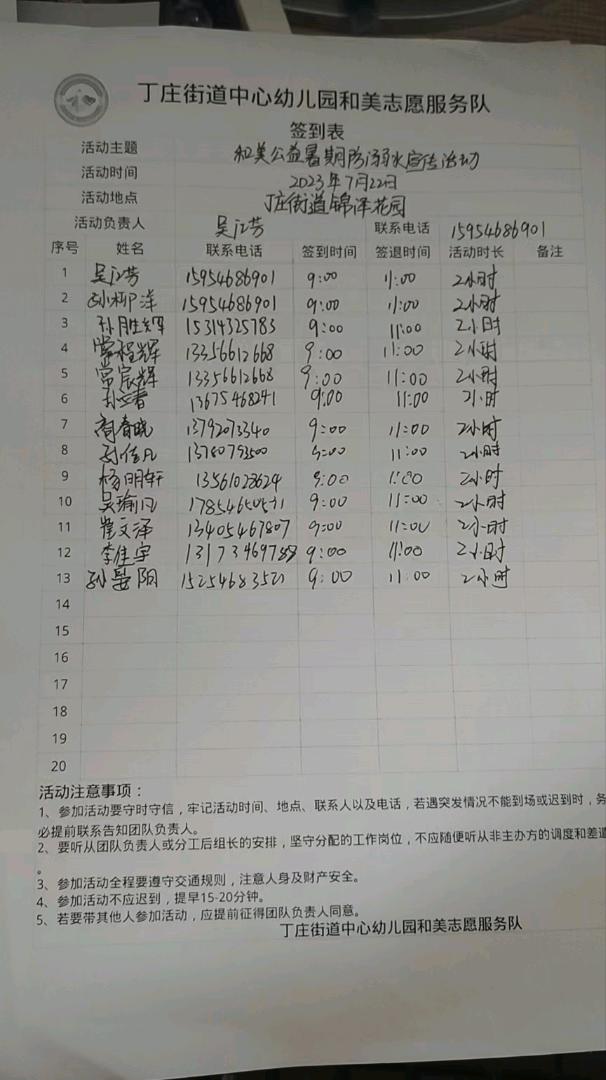 丁庄街道中心幼儿园和美志愿服务队
签到表
活动主题 和美公益暑期防溺水宣传活动
活动时间 2023年7月22日
活动地点 丁庄街道锦泽花园
活动负责人 吴江芳 联系电话 15954686901
序号 姓名 联系电话 签到时间 签退时间 活动时长 备注
1 吴江芳 15954686901 9:00 11:00 2小时
2 孙柳洋 15954686901 9:00 11:00 2小时
3 孙胜辉 15314325783 9:00 11:00 2小时
4 常程辉 13356612668 9:00 11:00 2小时
5 常宸辉 13356612668 9:00 11:00 2小时
6 13675468241 9:00 11:00 2小时
7 商春晓 13792073340 9:00 11:00 2小时
8 孙佳凡 9:00 11:00 2小时
9 杨明轩 13561023624 9:00 1:00 2小时
10 吴瑜凡 9:00 11:00 2小时
11 崔文泽 13405467807 9:00 11:00 2小时
12 李佳宇 9:00 11:00 2小时
13 孙晏阳 9:00 11:00 2小时
14
15
16
17
18
19
20
活动注意事项：
1、参加活动要守时守信，牢记活动时间、地点、联系人以及电话，若遇突发情况不能到场或迟到时，务
必提前联系告知团队负责人。
2、要听从团队负责人或分工后组长的安排，坚守分配的工作岗位，不应随便听从非主办方的调度和差遣
。
3、参加活动全程要遵守交通规则，注意人身及财产安全。
4、参加活动不应迟到，提早15-20分钟。
5、若要带其他人参加活动，应提前征得团队负责人同意。
丁庄街道中心幼儿园和美志愿服务队